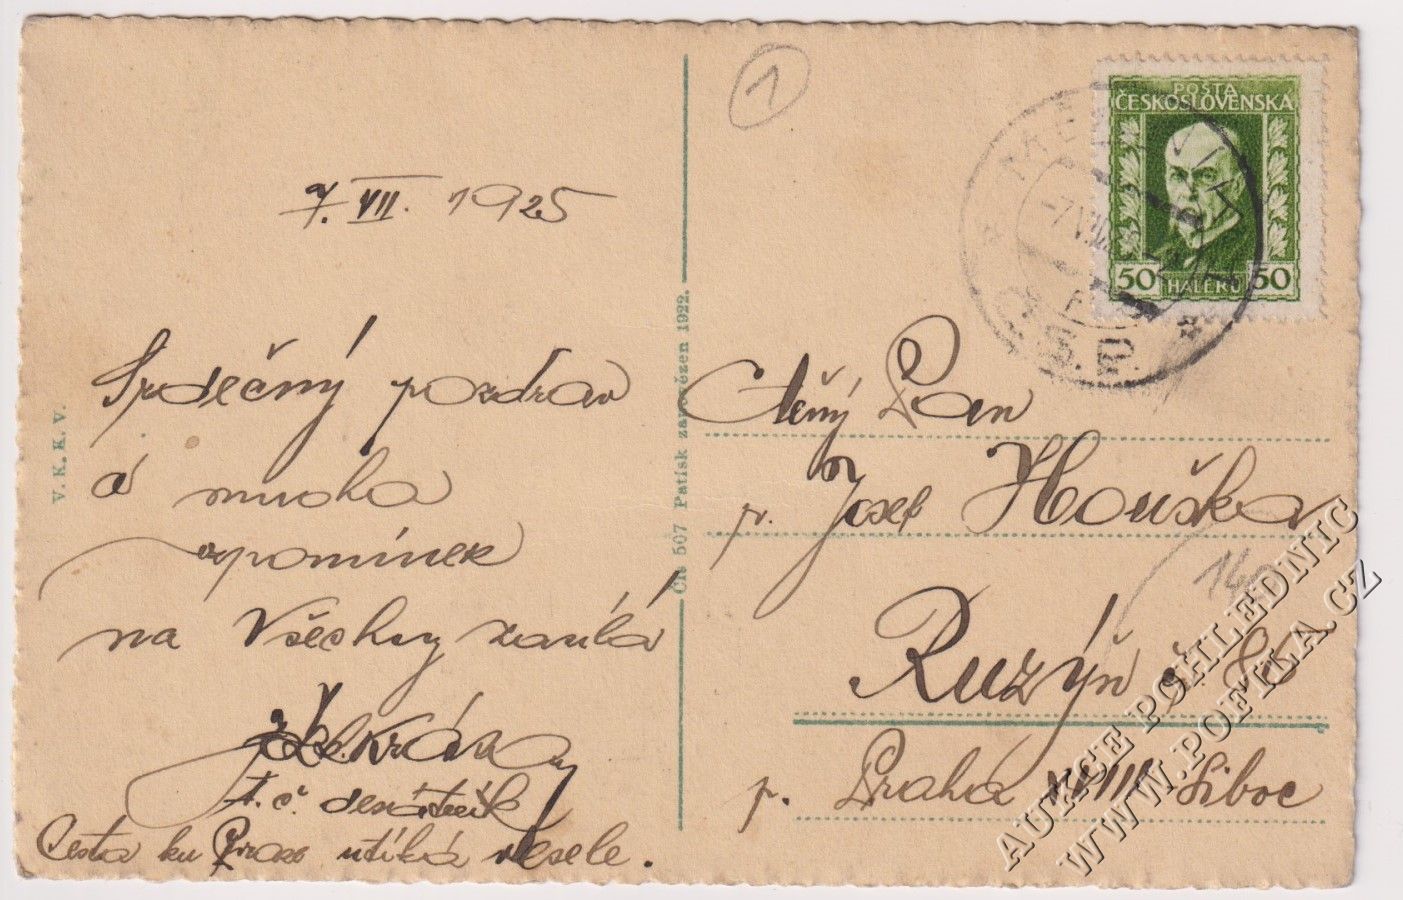 1
POŠTA
ČESKOSLOVENSKA
50 HALÉŘŮ 50
7. VII. 1925
Srdečný pozdrav
a mnoho
vzpomínek
na Všechny zasílá
t. č. desátník
Cesta ku Praze utíká vesele.
V. K. K. V.
Čís 507 Patisk zapovězen 1922.
Ctěný Pan
p. Josef Houška
140
Ruzýň č. 86
p. Praha XVIII Liboc
AUKCE POHLEDNIC
WWW.POFILA.CZ